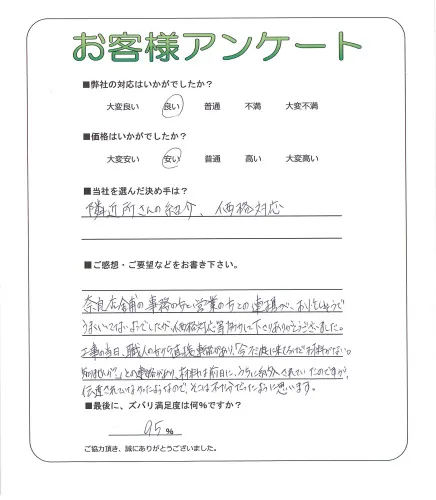 お客様アンケート
■弊社の対応はいかがでしたか?
大変良い 良い 普通 不満 大変不満
■価格はいかがでしたか?
大変安い 安い 普通 高い 大変高い
■当社を選んだ決め手は?
隣近所さんの紹介、価格対応
■ご感想・ご要望などをお書き下さい。
奈良店舗の事務の方と営業の方との連携が、
うまくいってないようでしたが、価格対応等して下さりありがとうございました。
工事の当日、職人の方から直接電話があり、今、に来てるけど材料がない。
との電話があり、材料は前日に、うちに納入されていたのですが、
伝達されていなかったようなので、そこは不十分だったように思います。
■最後に、ズバリ満足度は何%ですか?
95 %
ご協力頂き、誠にありがとうございました。